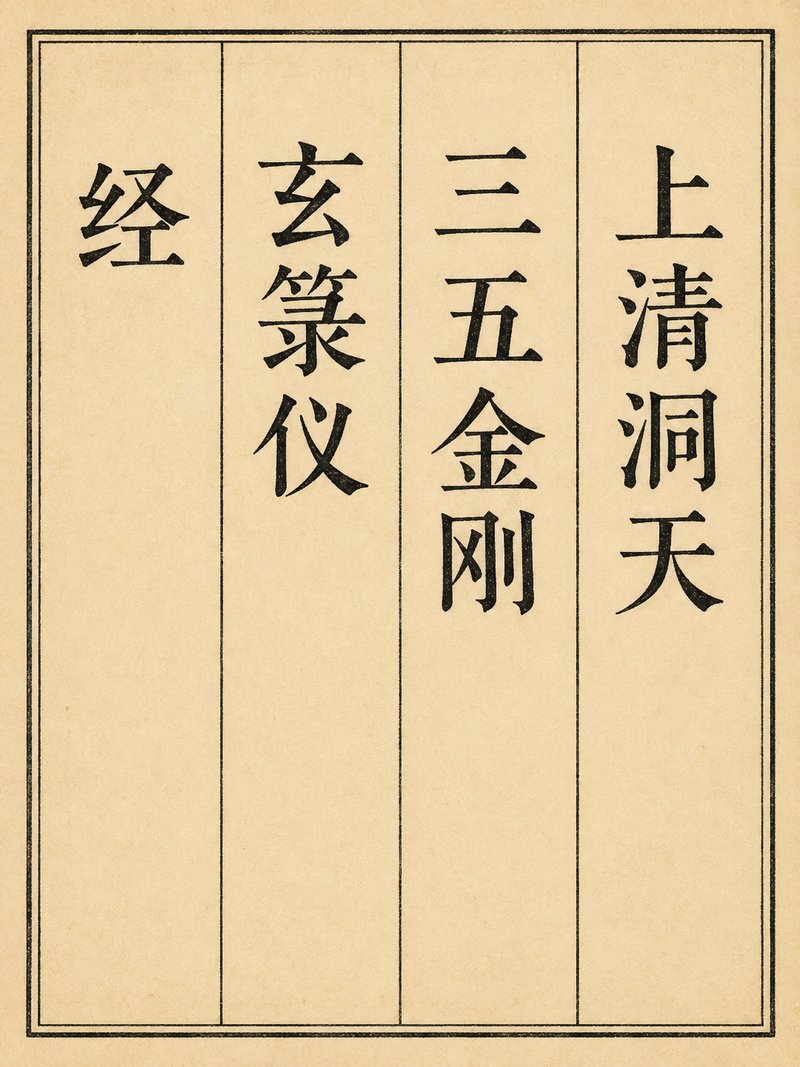 上清洞天
三五金刚
玄箓仪
经